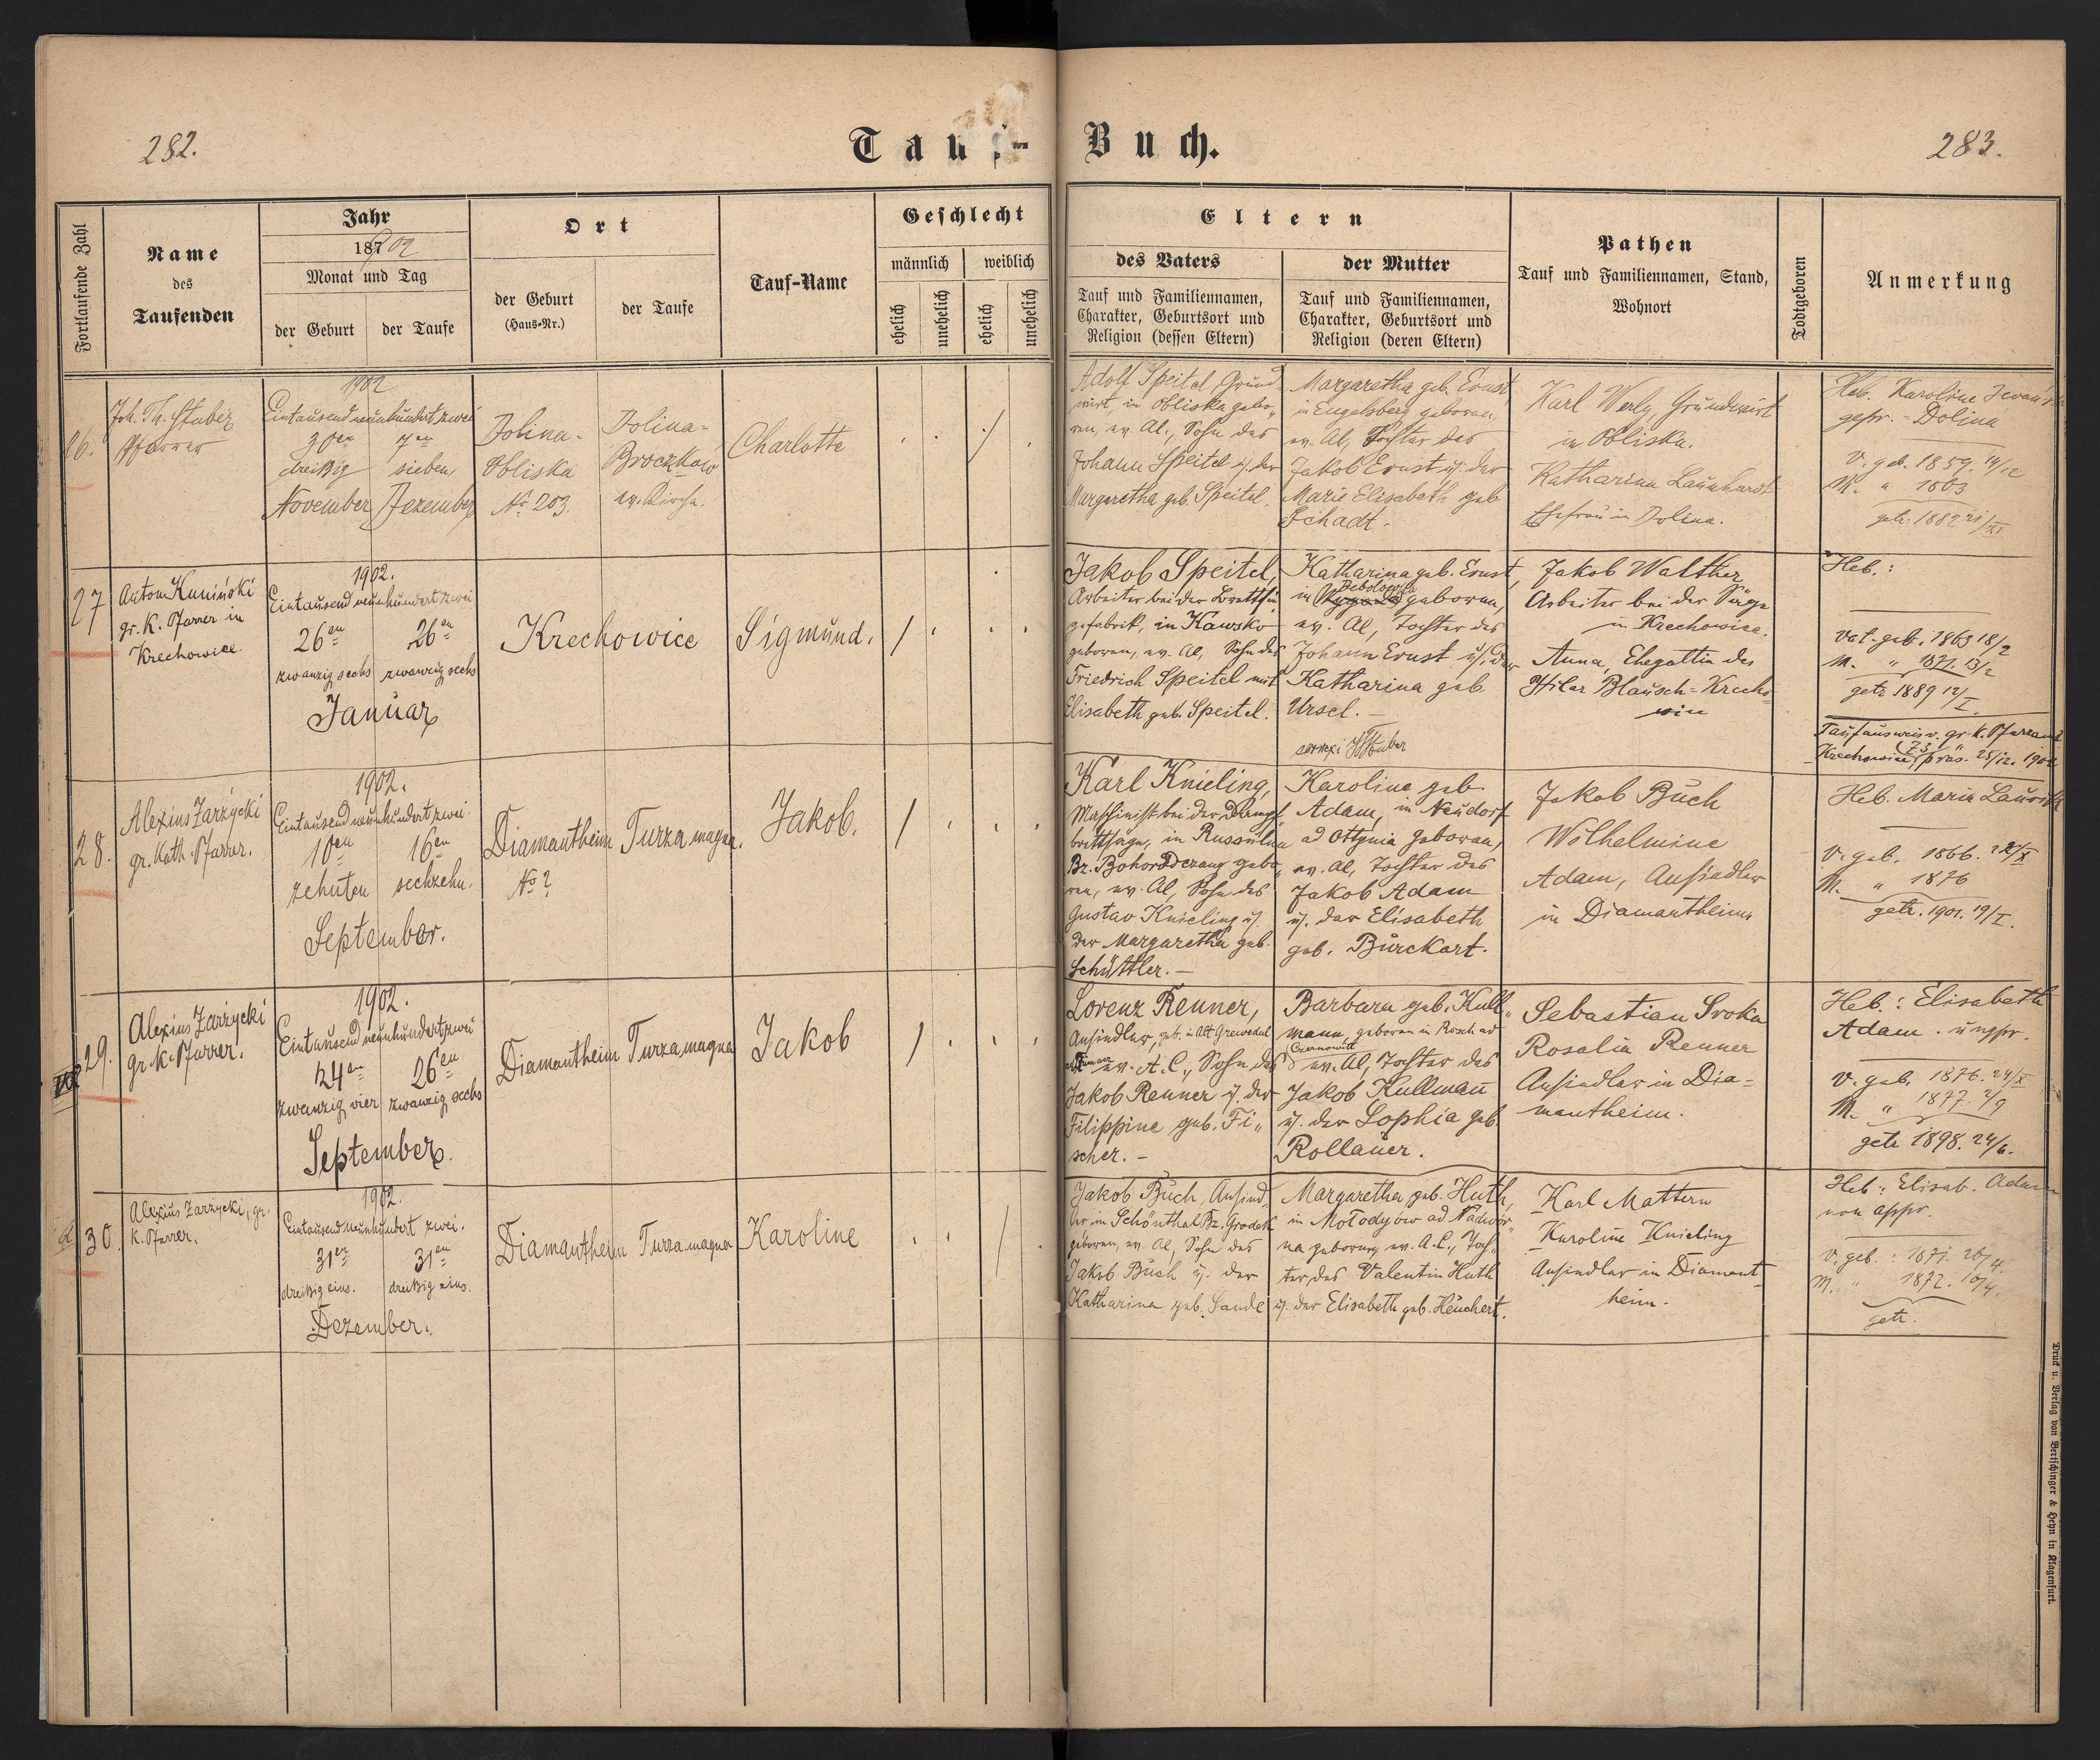 282.
Tauf-Buch.
283.
Fortlaufende Zahl
Name
des
Taufenden
Jahr
1902
Monat und Tag
der Geburt
der Taufe
Ort
der Geburt
(Haus-Nr.)
der Taufe
Tauf-Name
Geschlecht
männlich
weiblich
ehelich
unehelich
ehelich
unehelich
Eltern
des Vaters
Tauf und Familiennamen,
Charakter, Geburtsort und
Religion (dessen Eltern)
der Mutter
Tauf und Familiennamen,
Charakter, Geburtsort und
Religion (deren Eltern)
Pathen
Tauf und Familiennamen, Stand,
Wohnort
Todtgeboren
Anmerkung
26.
Joh. Th. Stuber
Pfarrer
1902
Eintausend neunhundert zwei
30en
dreißig
November
7en
sieben
Dezember
Dolina-
Obliska
No 203.
Dolina-
Broczkow
ev. Kirche.
Charlotte
Adolf Speitel, Grund-
wirt, in Obliska gebo-
ren, ev. Al., Sohn des
Johann Speitel u. der
Margaretha geb. Speitel.
Margaretha geb. Ernst
in Engelsberg geboren,
ev. Al, Tochter des
Jakob Ernst u. der
Marie Elisabeth geb.
Schadt.
Karl Werly, Grundwirt
in Obliska.
Katharina Launhardt
Ehefrau in Dolina.
Heb. Karoline
gepr. - Dolina
V. geb. 1859. 14/12
M. " 1863
getr. 1882 21/XI
27
Anton Kuniński
gr. K. Pfarrer in
Krechowice.
1902.
Eintausend neunhundert zwei
26en
zwanzig sechs
26en
zwanzig sechs
Januar
Krechowice
Sigmund.
/
Jakob Speitel,
Arbeiter bei der
gefabrik, in Kawsko
geboren, ev. Al, Sohn des
Friedrich Speitel mit
Elisabeth geb. Speitel.
Katharina geb. Ernst,
Debolowka
in geboren,
ev. Al, Tochter des
Johann Ernst u. der
Katharina geb.
Ursel. -
correxi Stuber
Jakob Walther,
Arbeiter bei der Säge
in Krechowice.
Anna, Ehegattin des
Hilar Blausch - Krecho-
wice
Heb.:
Vat. geb. 1863 18/2
M. " 1871. 13/2
getr 1889 12/I.
Taufausweis v. gr. k. Pfarramt
Krechowice präs. 25/12. 1902
28.
Alexius Zarzycki
gr. kath. Pfarrer.
1902.
Eintausend neunhundert zwei
10en
zehnten
16en
sechzehn.
September.
Diamantheim
No ?
Turza magna.
Jakob.
/
Karl Knieling,
Maschinist bei der Dampf-
brettsäge, in Russulna
Bz. Bohorodczany gebo-
ren, ev. Al, Sohn des
Gustav Knieling u.
der Margaretha geb.
Schüttler. -
Karoline geb.
Adam, in Neudorf
ad Ottynia geboren,
ev. Al, Tochter des
Jakob Adam
u. der Elisabeth
geb. Burckart.
Jakob Buch
Wilhelmine
Adam, Ansiedler
in Diamantheim
Heb. Maria
V. geb. 1866. 28/X
M. " 1876
getr. 1901. 19/I.
29.
Alexius Zarzycki
gr. k. Pfarrer.
1902.
Eintausend neunhundert zwei
24en
zwanzig vier
26en
zwanzig sechs
September.
Diamantheim
Turza magna
Jakob
/
Lorenz Renner,
Ansiedler, geb. in Alt
ev. A. C., Sohn des
Jakob Renner u. der
Filippine geb. Fi-
scher. -
Barbara geb. Kull-
mann, geboren in Rosch ad
Czernowitz
ev. Al, Tochter des
Jakob Kullmann
u. der Sophia geb.
Rollauer.
Sebastian Sroka
Rosalia Renner
Ansiedler in Dia-
mantheim.
Heb.: Elisabeth
Adam. ungepr.
V. geb. 1876. 24/X
M. " 1877. 2/9
getr 1898. 24/6.
30.
Alexius Zarzycki, gr.
k. Pfarrer.
1902.
Eintausend neunhundert zwei.
31en
dreißig eins.
31en
dreißig eins.
Dezember.
Diamantheim
Turza magna
Karoline
/
Jakob Buch, Ansied-
ler in Schönthal Bz. Grodek
geboren, ev. Al, Sohn des
Jakob Buch u. der
Katharina geb. Sande
Margaretha geb. Huth,
in Mołodyów ad Nadwor-
na geboren, ev. A. C., Toch-
ter des Valentin Huth
u. der Elisabeth geb. Heuchert.
Karl Mattern
Karoline Knieling
Ansiedler in Diamant-
heim.
Heb.: Elisab. Adam
non appr.
V. geb.: 1871. 26/4.
M. " 1872. 10/4.
getr.
Druck u. Verlag von Bertschinger & Heyn in Klagenfurt.